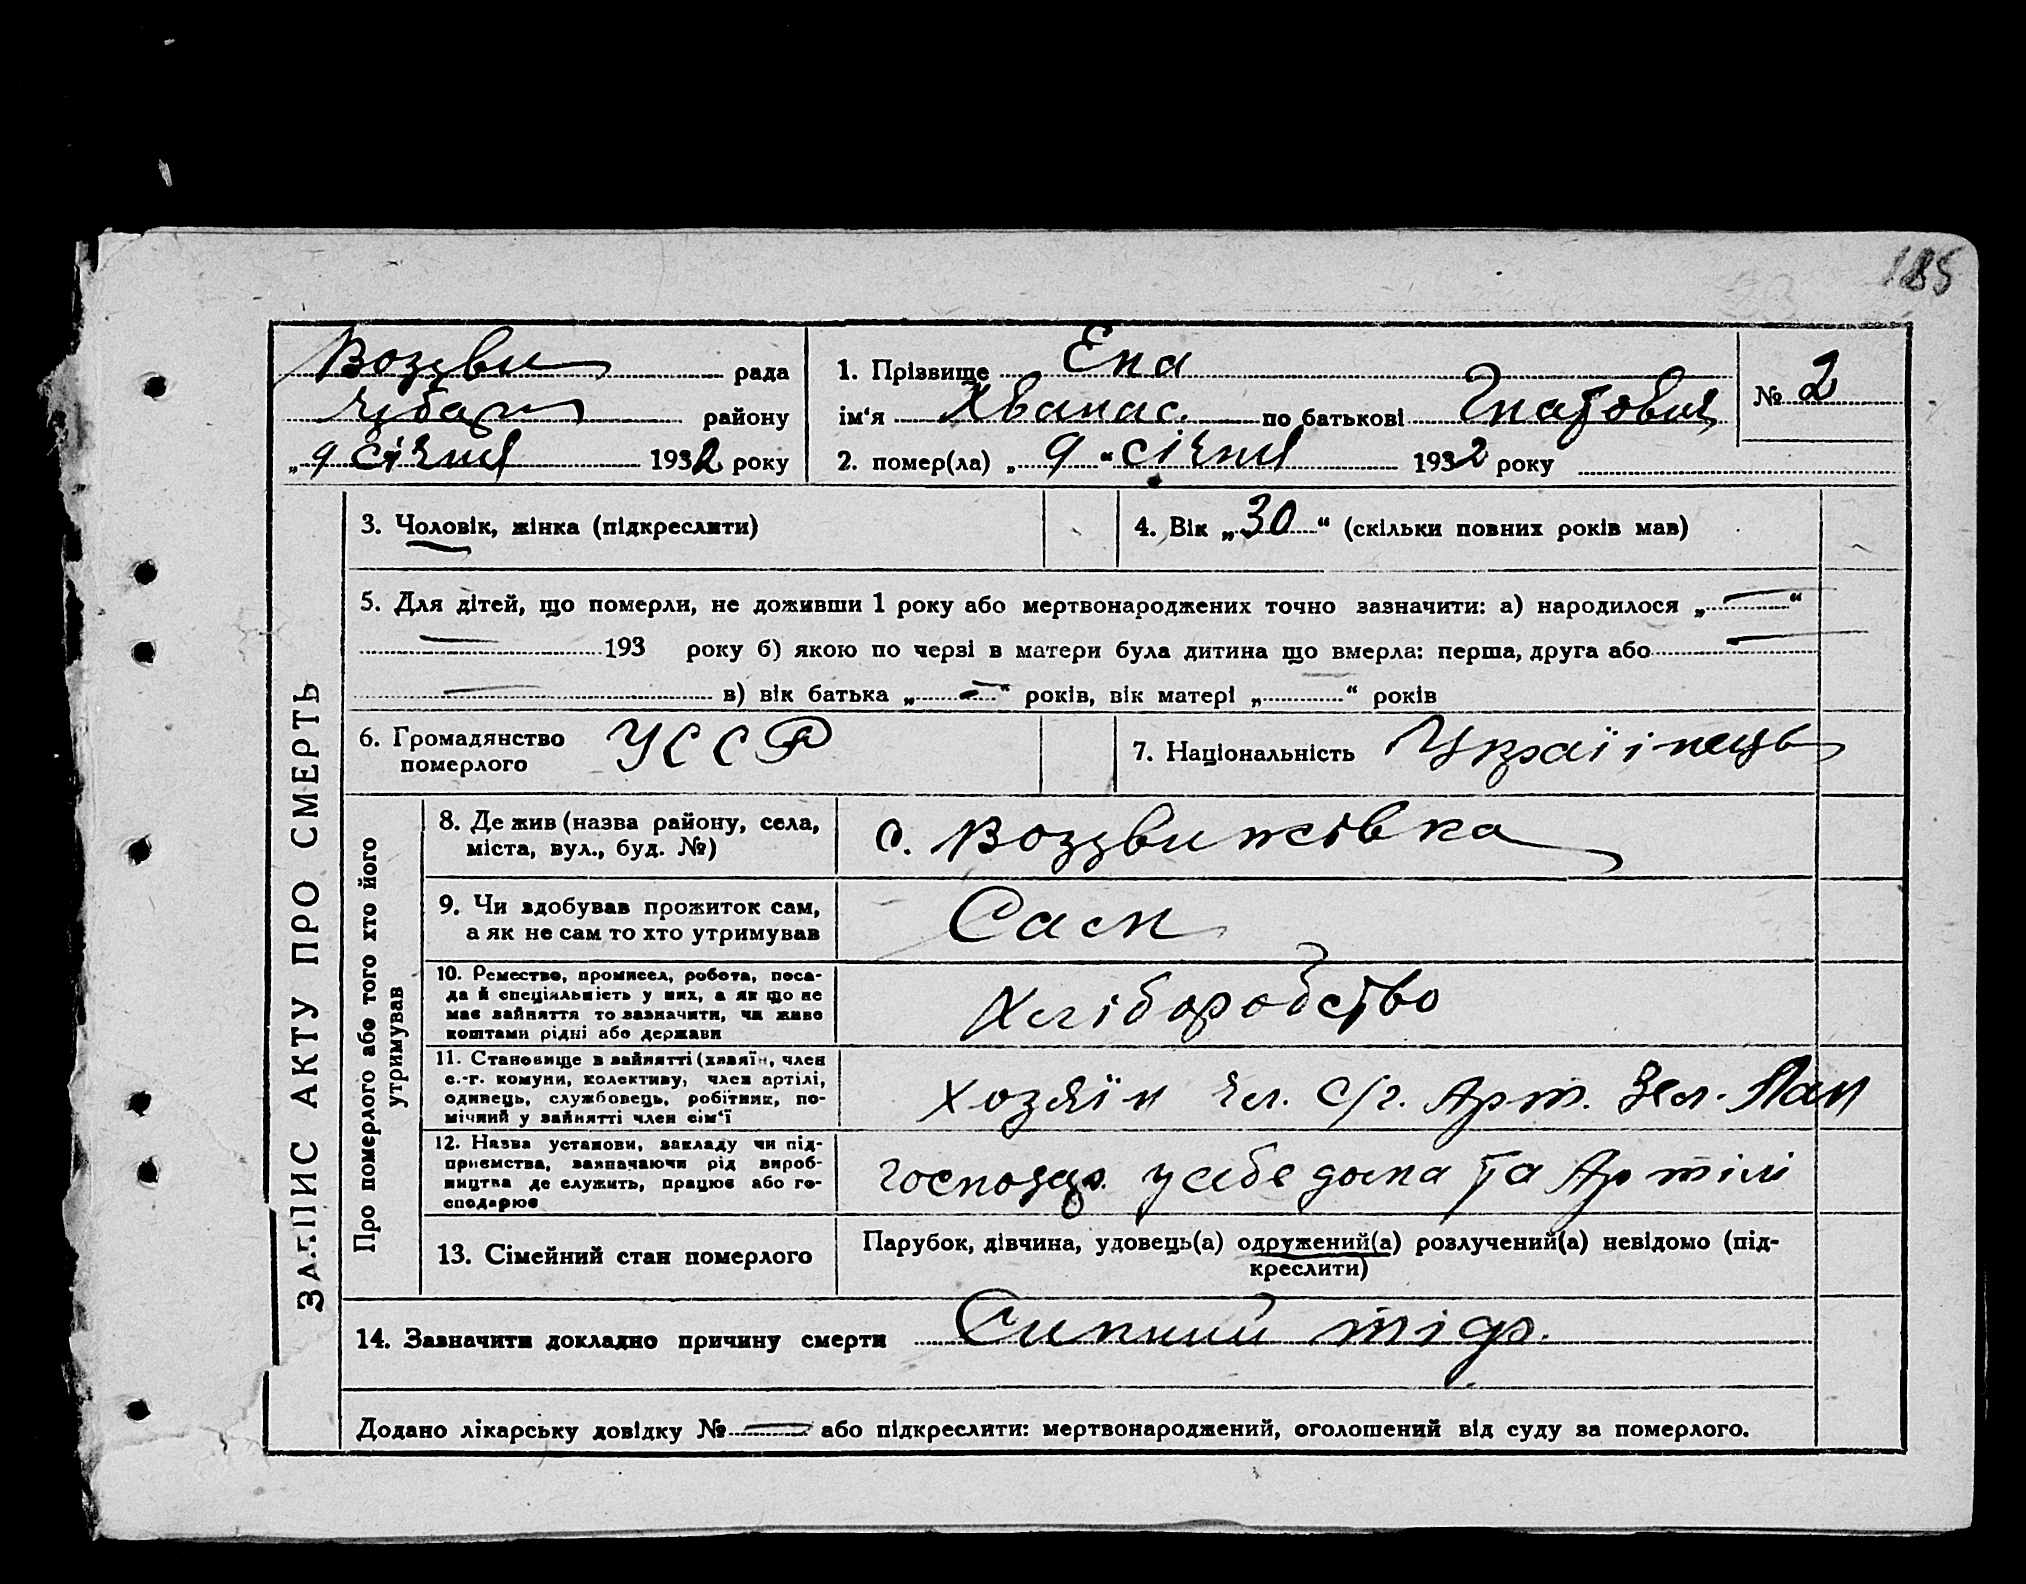 185
Воздви рада
району
„ 9 січня 1932 року
1. Прізвище Епа
ім‘я Хванас. по батькові Гнатович
2. помер(ла) „ 9 “ січня 1932 року
№ 2
ЗАПИС АКТУ ПРО СМЕРТЬ
3. Чоловік, жінка (підкреслити)
4. Вік „ 30 “ (скільки повних років мав)
5. Для дітей, що померли, не доживши 1 року або мертвонароджених точно зазначити: а) народилося „ — “
— 193 року б) якою по черзі в матери була дитина що вмерла: перша, друга або —
— в) вік батька „ — “ років, вік матері „ “ років
6. Громадянство
померлого
УССР
7. Національність Украіінець
Про померлого або того хто його
утримував
8. Де жив (назва району, села,
міста, вул., буд. №)
с. Воздвижівка
9. Чи здобував прожиток сам,
а як не сам то хто утримував
Сам
10. Ремество, промисел, робота, поса-
да й спеціяльність у них, а як що не
має зайняття то зазначити, чи живе
коштами рідні або держави
Хліборобство
11. Становище в зайнятті (хазяїн, член
с.-г. комуни, колективу, член артілі,
одинець, службовець, робітник, по-
мічний у зайнятті член сім‘ї
Хозяїн чл. С/г. Арт. Зел. Лан
12. Назва установи, закладу чи під-
приємства, зазначаючи рід вироб-
ництва де служить, працює або го-
сподарює
господар. у себе дома та Артілі
13. Сімейний стан померлого
Парубок, дівчина, удовець(а) одружений(а) розлучений(а) невідомо (під-
креслити)
14. Зазначити докладно причину смерти Сипний тіф.
Додано лікарську довідку № — або підкреслити: мертвонароджений, оголошений від суду за померлого.